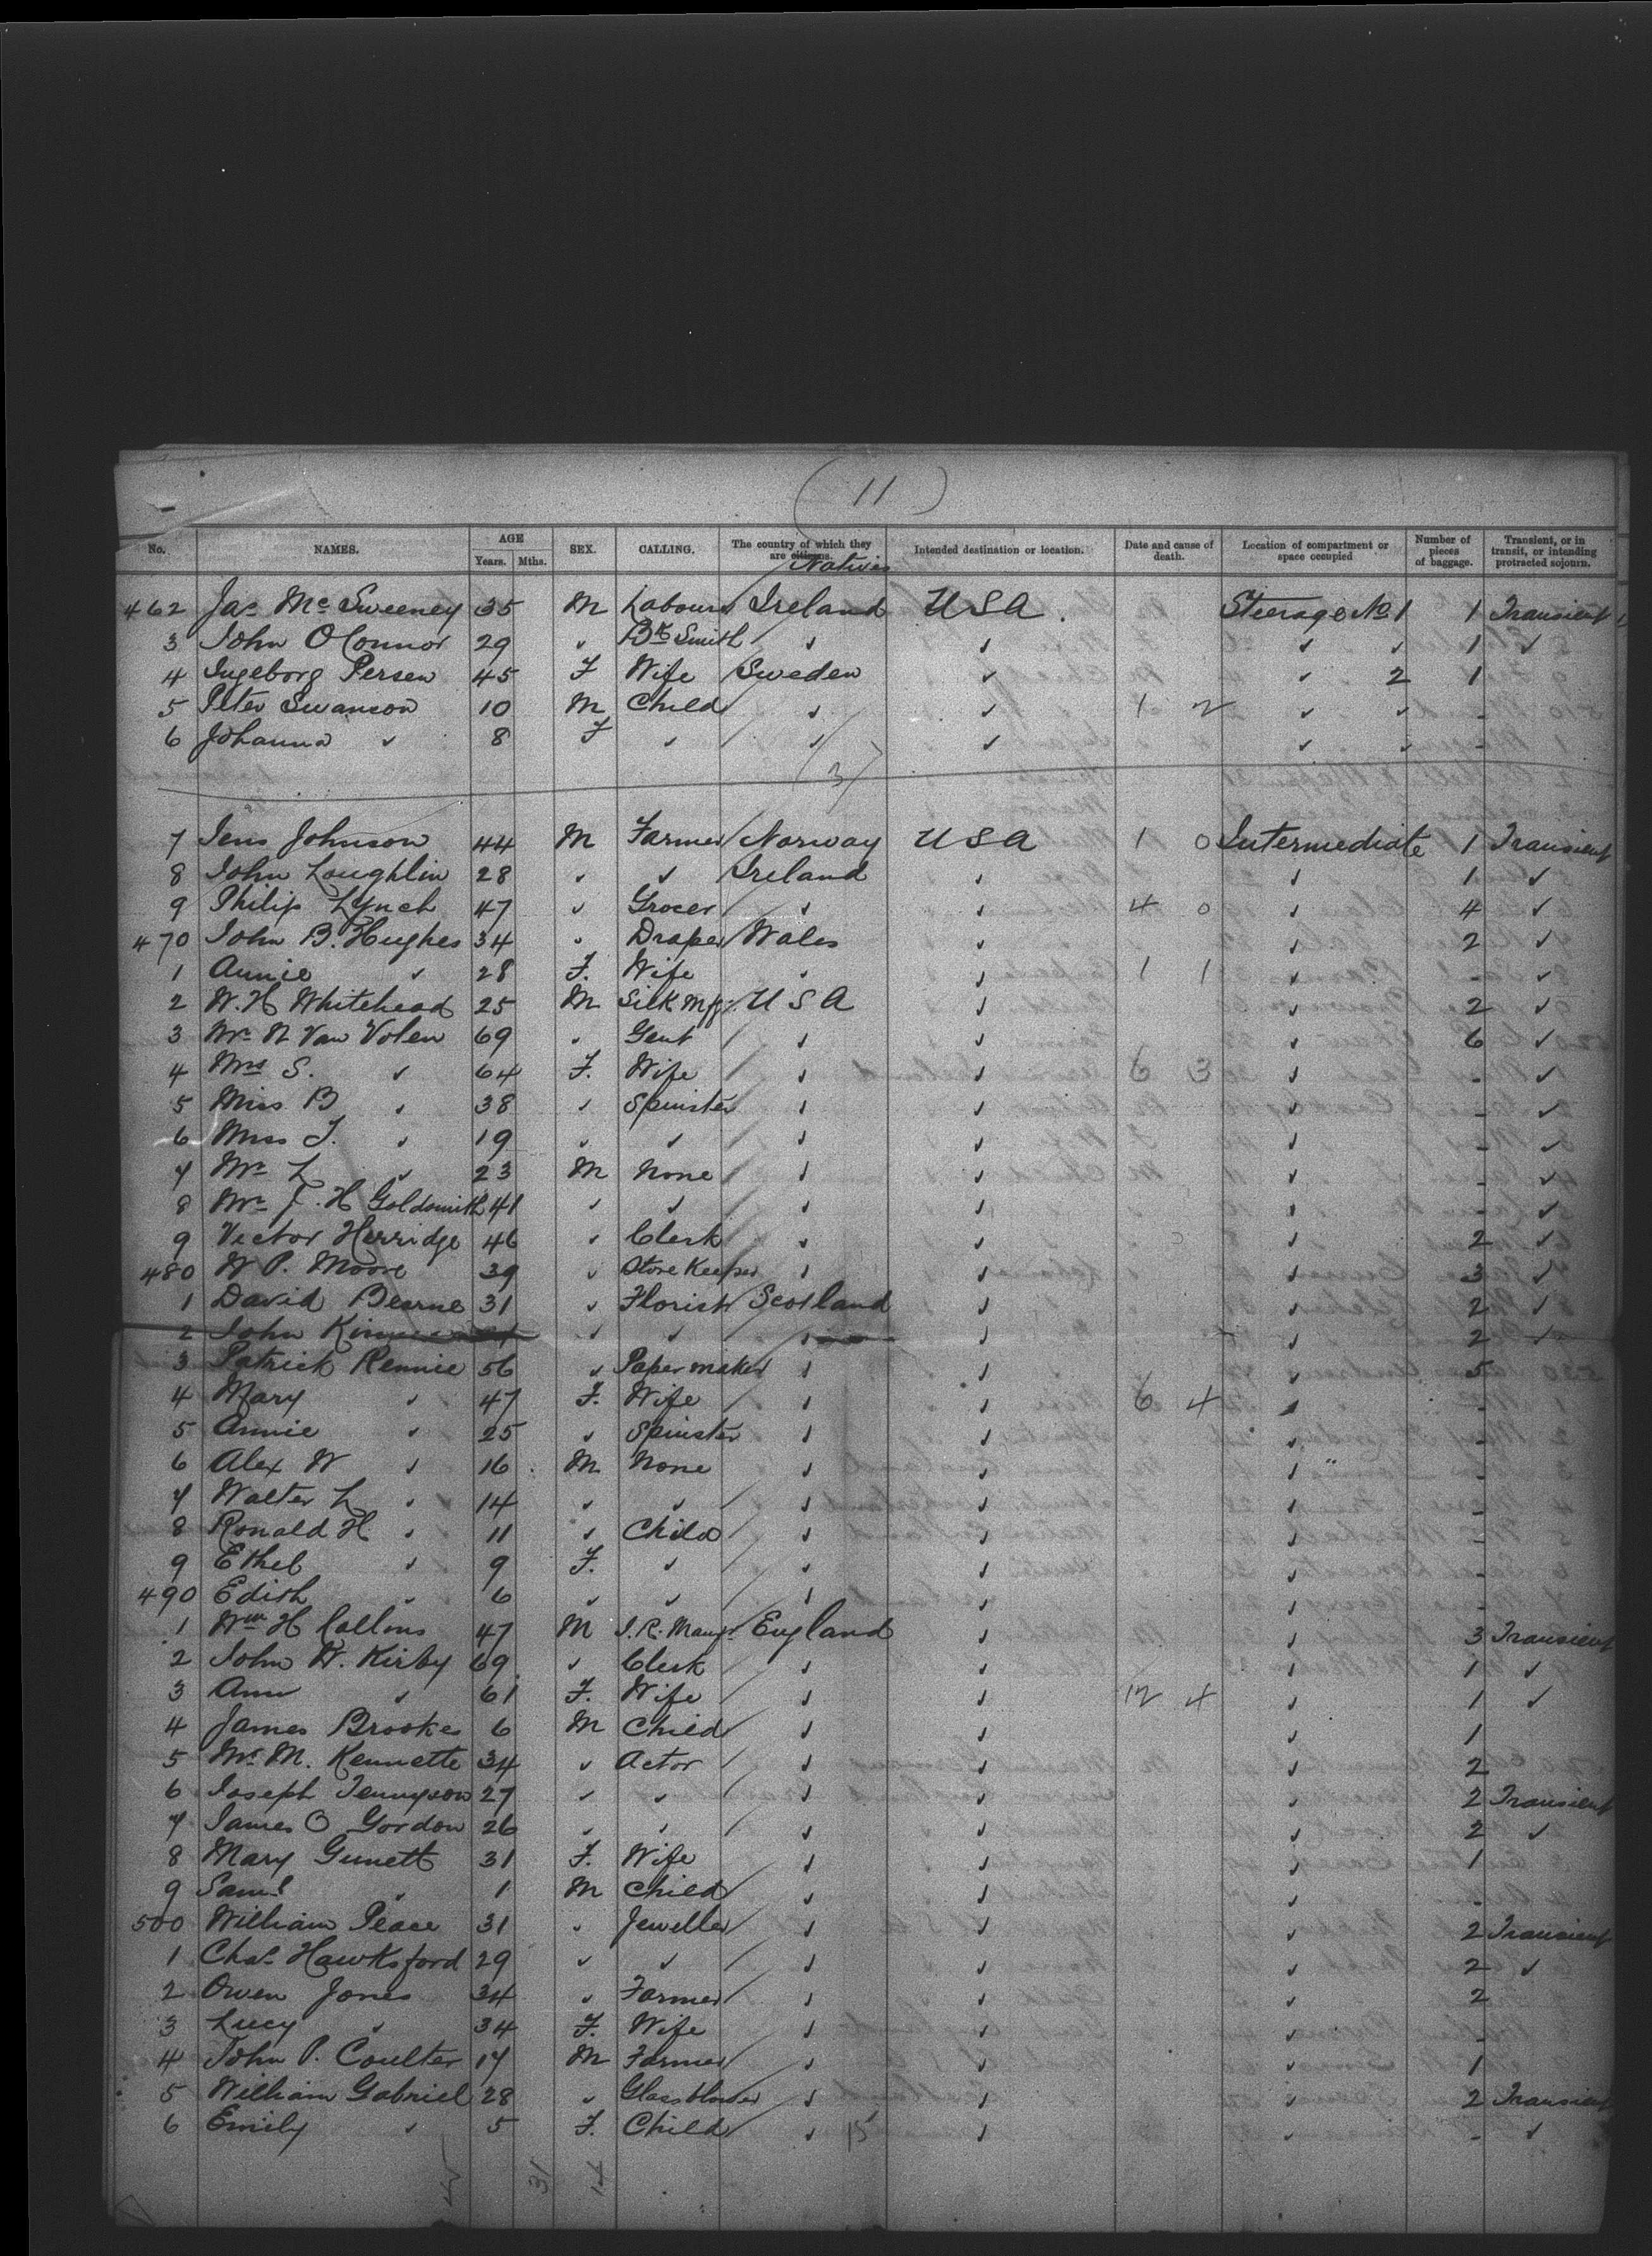 ( 11 )
No. NAMES. AGE Years. Mths. SEX. CALLING. The country of which they are citizens. Natives Intended destination or location. Date and cause of death. Location of compartment or space occupied Number of pieces of baggage. Transient, or in transit, or intending protracted sojourn.
462 Jas. Mc Sweeney 35 M Labourer Ireland USA. Steerage No 1 1 Transient
3 John O'Connor 29 ✓ Bk Smith ✓ ✓ ✓ ✓ 1 ✓
4 Ingeborg Persen 45 F Wife Sweden ✓ ✓ 2 1
5 Peter Swanson 10 M Child ✓ ✓ 1 2 ✓ ✓ -
6 Johanna ✓ 8 F ✓ ✓ ✓ ✓ ✓ -
(3)
7 Jens Johnson 44 M Farmer Norway USA 1 0 Intermediate 1 Transient
8 John Loughlin 28 ✓ ✓ Ireland ✓ ✓ 1 ✓
9 Philip Lynch 47 ✓ Grocer ✓ ✓ 4 0 ✓ 4 ✓
470 John B. Hughes 34 ✓ Draper Wales ✓ ✓ 2 ✓
1 Annie ✓ 28 F. Wife ✓ ✓ 1 1 ✓ - ✓
2 W. H Whitehead 25 M Silk Mfr. USA ✓ ✓ 2 ✓
3 Mr. N Van Volen 69 ✓ Gent ✓ ✓ ✓ 6 ✓
4 Mrs S. ✓ 64 F. Wife ✓ ✓ 6 3 ✓ - ✓
5 Miss B ✓ 38 ✓ Spinster ✓ ✓ ✓ - ✓
6 Miss J. ✓ 19 ✓ ✓ ✓ ✓ ✓ - ✓
7 Mr L ✓ 23 M None ✓ ✓ ✓ - ✓
8 Mr J. H Goldsmith 41 ✓ ✓ ✓ ✓ ✓ - ✓
9 Victor Herridge 46 ✓ Clerk ✓ ✓ ✓ 2 ✓
480 W P. Moore 39 ✓ Store Keeper ✓ ✓ ✓ 3 ✓
1 David Bearne 31 ✓ Florist Scotland ✓ ✓ 2 ✓
2 John ✓ ✓ ✓ ✓ ✓ 2 ✓
3 Patrick Rennie 56 ✓ Paper maker ✓ ✓ ✓ 5
4 Mary ✓ 47 F. Wife ✓ ✓ 6 4 ✓ -
5 Annie ✓ 25 ✓ Spinster ✓ ✓ ✓ -
6 Alex W ✓ 16 M. None ✓ ✓ ✓ -
7 Walter L ✓ 14 ✓ ✓ ✓ ✓ ✓ -
8 Ronald H ✓ 11 ✓ Child ✓ ✓ ✓ -
9 Ethel ✓ 9 F. ✓ ✓ ✓ ✓ -
490 Edith ✓ 6 ✓ ✓ ✓ ✓ ✓ -
1 Wm H Collins 47 M J. R. Mangr. England ✓ ✓ 3 Transient
2 John W. Kirby 69 ✓ Clerk ✓ ✓ ✓ 1 ✓
3 Ann ✓ 61 F. Wife ✓ ✓ 12 4 ✓ 1 ✓
4 James Brookes 6 M Child ✓ ✓ ✓ 1
5 Mr. M. Kennette 34 ✓ Actor ✓ ✓ ✓ 2
6 Joseph Tennyson 27 ✓ ✓ ✓ ✓ ✓ 2 Transient
7 James O Gordon 26 ✓ ✓ ✓ ✓ ✓ 2 ✓
8 Mary Gunett 31 F. Wife ✓ ✓ ✓ 1
9 Saml ✓ 1 M Child ✓ ✓ ✓ -
500 William Pease 31 ✓ Jeweller ✓ ✓ ✓ 2 Transient
1 Chas. Hawksford 29 ✓ ✓ ✓ ✓ ✓ 2 ✓
2 Owen Jones 34 ✓ Farmer ✓ ✓ ✓ 2
3 Lucy ✓ 34 F. Wife ✓ ✓ ✓ -
4 John P. Coulter 17 M Farmer ✓ ✓ ✓ 1
5 William Gabriel 28 ✓ Glass blower ✓ ✓ ✓ 2 Transient
6 Emily ✓ 5 F. Child ✓ 15 ✓ ✓ - ✓
31 14